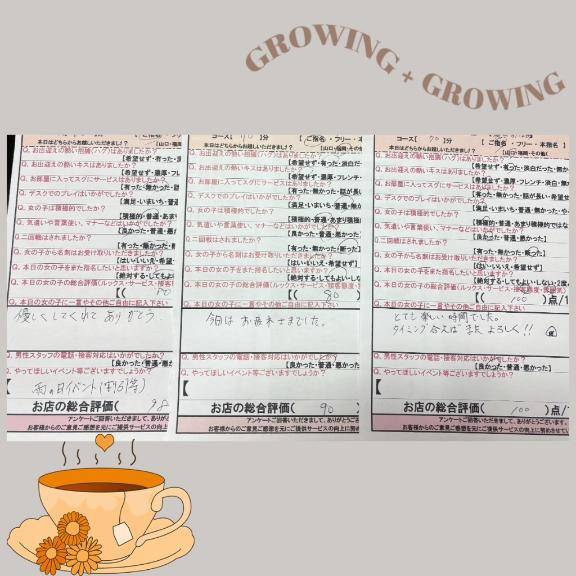 GROWING + GROWING
本日はどちらからお越しいただきましたか?
Q. お出迎えの熱い抱擁(ハグ)はありましたか?
【希望せず・有った・
Q. お出迎えの熱いキスはありましたか?
【希望せず・濃厚・フレ
Q. お部屋に入ってスグにサービスはありましたか?
【有った・無かった・話
Q. デスクでのプレイはいかがでしたか?
【満足・いまいち・普通
Q. 女の子は積極的でしたか?
【積極的・普通・あま
Q. 気遣いや言葉使い、マナーなどはいかがでしたか?
【良かった・普通・悪
Q. 二回戦はされましたか?
【有った・無かった・
Q. 女の子から名刺はお受け取りいただきましたか?
【はい・いいえ・希望
Q. 本日の女の子をまた指名したいと思いますか?
【絶対する・してもよ
Q. 本日の女の子の総合評価(ルックス・サービス・接客
【(
Q. 本日の女の子に一言やその他ご自由に記入下さい
優しくしてくれて ありがとう
Q. 男性スタッフの電話・接客対応はいかがでしたか?
【良かった・普通・悪か
Q. やってほしいイベント等ございますでしょうか?
【 雨の日イベント(割引等)
お店の総合評価( 98
アンケートご回答いただきまして、ありが
お客様からのご意見ご感想を元にご提供サービスの向上に
】分
【 ご指名 ・ フリー ・
【山口・福岡・その他
Q. お出迎えの熱い抱擁(ハグ)はありましたか?
【希望せず・有った・淡白だった・無か
Q. お出迎えの熱いキスはありましたか?
【希望せず・濃厚・フレンチ・淡白・
Q. お部屋に入ってスグにサービスはありましたか?
【有った・無かった・話が長い
Q. デスクでのプレイはいかがでしたか?
【満足・いまいち・普通・無
Q. 女の子は積極的でしたか?
【積極的・普通・あまり積極
Q. 気遣いや言葉使い、マナーなどはいかがでしたか?
【良かった・普通・悪かった】
Q. 二回戦はされましたか?
【有った・無かった・断った】
Q. 女の子から名刺はお受け取りいただきましたか?
【はい・いいえ・希望せず】
Q. 本日の女の子をまた指名したいと思いますか?
【絶対する・してもよい・しな
Q. 本日の女の子の総合評価(ルックス・サービス・接客態度・
【( 80
Q. 本日の女の子に一言やその他ご自由に記入下さい
今日は お疲れさまでした。
Q. 男性スタッフの電話・接客対応はいかがでしたか?
【良かった・普通・悪かった
Q. やってほしいイベント等ございますでしょうか?
【
お店の総合評価( 90
アンケートご回答いただきまして、ありがとうご
お客様からのご意見ご感想を元にご提供サービスの向上に
コース【 70 】分
【 ご指名 ・ フリー ・ 本指名 】
本日はどちらからお越しいただきましたか?
【山口・福岡・その他(
Q. お出迎えの熱い抱擁(ハグ)はありましたか?
【希望せず・有った・淡白だった・無
Q. お出迎えの熱いキスはありましたか?
【希望せず・濃厚・フレンチ・淡白・無
Q. お部屋に入ってスグにサービスはありましたか?
【有った・無かった・話が長い・希望せ
Q. デスクでのプレイはいかがでしたか?
【満足・いまいち・普通・無かった・や
Q. 女の子は積極的でしたか?
【積極的・普通・あまり積極的ではな
Q. 気遣いや言葉使い、マナーなどはいかがでしたか?
【良かった・普通・悪かった】
Q. 二回戦はされましたか?
【有った・無かった・断った】
Q. 女の子から名刺はお受け取りいただきましたか?
【はい・いいえ・希望せず】
Q. 本日の女の子をまた指名したいと思いますか?
【絶対する・してもよい・しない・2度
Q. 本日の女の子の総合評価(ルックス・サービス・接客態度・感度・気
【( 100 )点/1
Q. 本日の女の子に一言やその他ご自由に記入下さい
とても楽しい時間でした。
タイミング合えば またよろしく!!
Q. 男性スタッフの電話・接客対応はいかがでしたか?
【良かった・普通・悪かった】
Q. やってほしいイベント等ございますでしょうか?
【
お店の総合評価( 100 )点/
アンケートご回答いただきまして、ありがとうござい
お客様からのご意見ご感想を元にご提供サービスの向上に努めさせてい